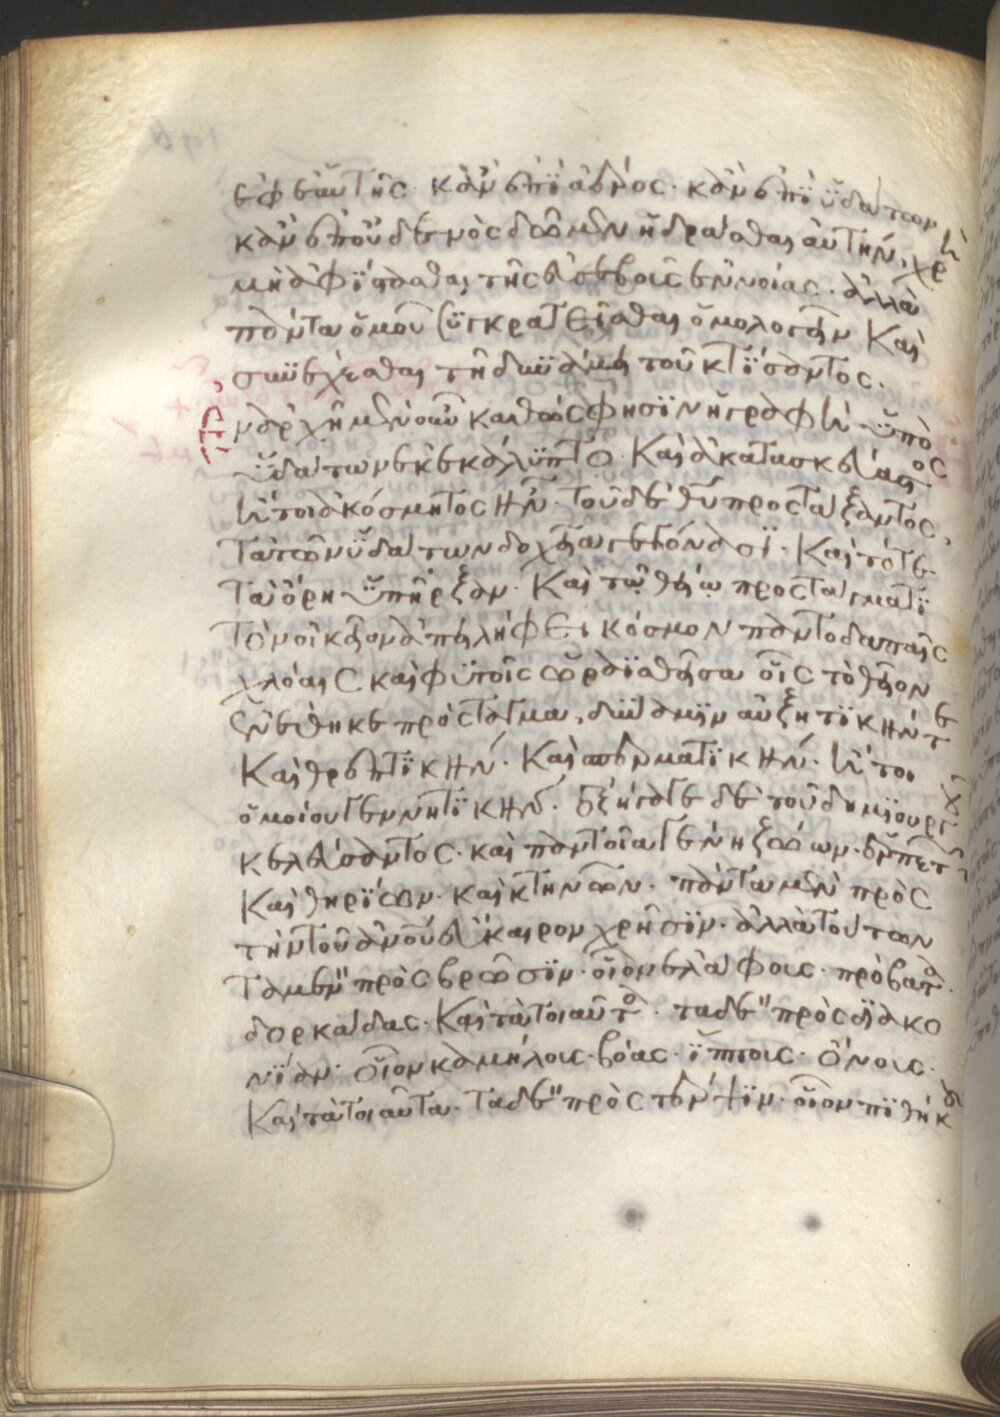 ἐφ ἑαυτῆς· κἂν ἐπὶ ἀέρος· κἂν ἐπὶ ὑδάτων
κἂν ἐπ οὐδενὸς δῶμεν ἡδράσθαι αὐτὴν, χρὴ
μὴ ἀφίστασθαι τῆς εὐσεβοῦς ἐννοίας· ἀλλὰ
πάντα ὁμοῦ συγκρατεῖσθαι ὁμολογεῖν καὶ
συνέχεσθαι τῇ δυνάμει τοῦ κτίσαντος·
Ἐν ἀρχῇ μὲν οὖν καθώς φησιν ἡ γραφὴ ὑπὸ
ὑδάτων ἐκεκάλυπτο· καὶ ἀκατασκεύαστος
ἤτοι ἀκόσμητος ἦν· τοῦ δὲ θυ προστάξαντος,
τὰ τῶν ὑδάτων δοχεῖα γεγόνασι· καὶ τότε
τὰ ὄρη ὑπῆρξαν· καὶ τῷ θείῳ προστάγματι
τὸν οἰκεῖον ἀπείληφε κόσμον παντοδαπαῖς
χλόαις καὶ φυτοῖς ὡραϊσθεῖσα οἷς τὸ θεῖον
ἐνέθηκε πρόσταγμα, δύναμιν αὐξητικήν τε
καὶ θρεπτικήν· καὶ σπερματικήν· ἤτοι
ὁμοίου γεννητικήν· ἐξήγαγε δὲ τοῦ δημιουργοῦ
κελεύσαντος· καὶ παντοῖα γένη ζώων· ἑρπετῶν
καὶ θηρίων· καὶ κτηνῶν· πάντα μὲν πρὸς
τὴν τοῦ ἀνου εὔκαιρον χρῆσιν· ἀλλὰ τούτων
τὰ μὲν πρὸς βρῶσιν· οἷον ἐλάφους· πρόβατα·
δορκάδας· καὶ τὰ τοιαῦτα· τὰ δὲ πρὸς διακο
νίαν· οἷον καμήλους· βόας· ἵππους· ὄνους·
καὶ τὰ τοιαῦτα· τὰ δὲ πρὸς τέρψιν· οἷον πιθήκους